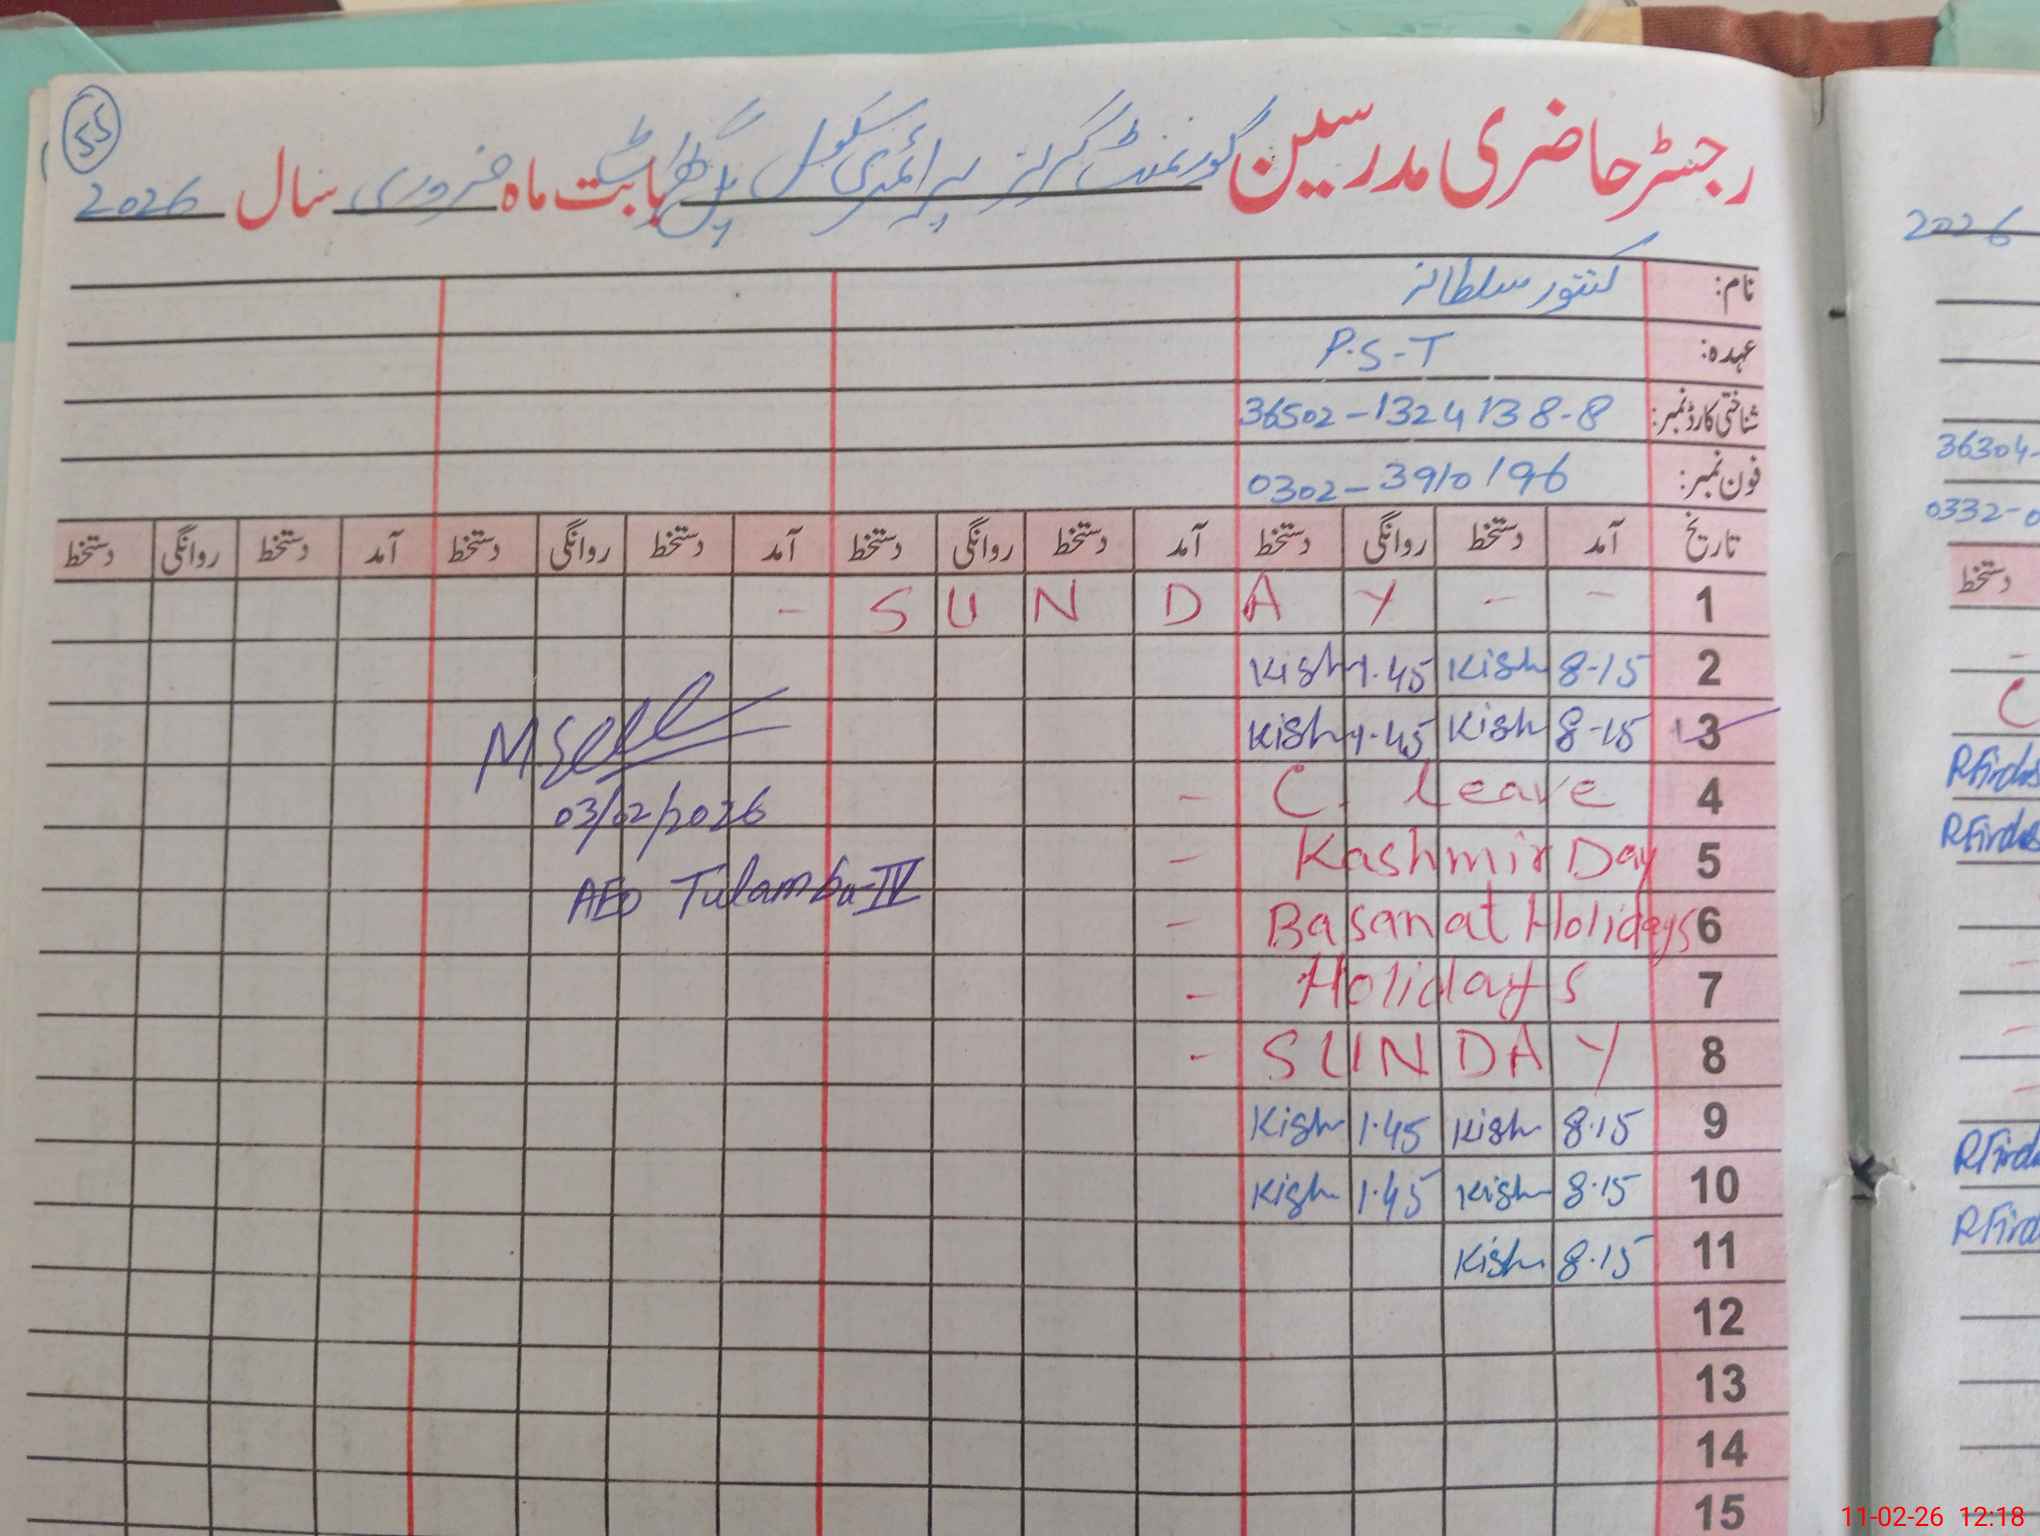 55
رجسٹر حاضری مدرسین گورنمنٹ گرلز پرائمری سکول پل گھراٹ بابت ماہ فروری سال 2026
نام: کشور سلطانہ
عہدہ: P.S-T
شناختی کارڈ نمبر: 36502-1324138-8
فون نمبر: 0302-3910196
تاریخ آمد دستخط روانگی دستخط آمد دستخط روانگی دستخط آمد دستخط روانگی دستخط آمد دستخط روانگی دستخط
- S U N D A Y - - 1
Kish 1.45 Kish 8-15 2
Kish 1.45 Kish 8-15 3
- C. Leave 4
03/02/2026
- Kashmir Day 5
AEO Tulamba-IV
- Basanat Holidays 6
- Holidays 7
- SUNDAY 8
Kish 1.45 Kish 8.15 9
Kish 1.45 Kish 8.15 10
Kish 8.15 11
12
13
14
15
2026
36304-
0332-0
دستخط
C
RFirdus
RFirdus
RFirdu
RFird
11-02-26 12:18